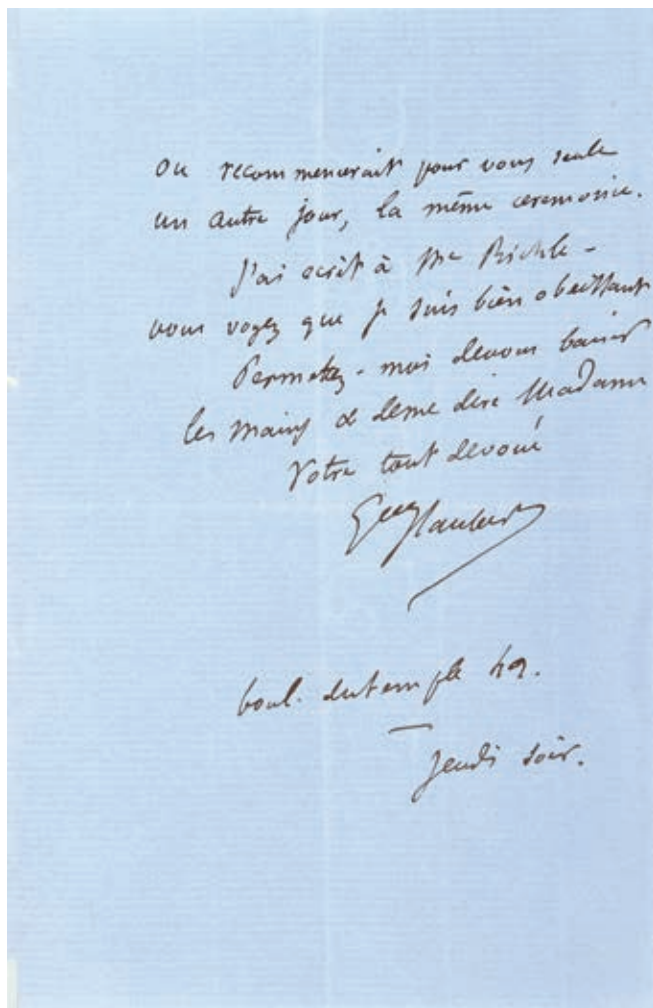 on recommencerait pour vous seule
un autre jour, la même ceremonie.
J'ai ecrit à Me
vous voyez que je suis bien obeissant
Permettez-moi de vous baiser
les mains & de me dire Madame
Votre tout devoué
Gve Flaubert
boul. du temple 42.
Jeudi soir.